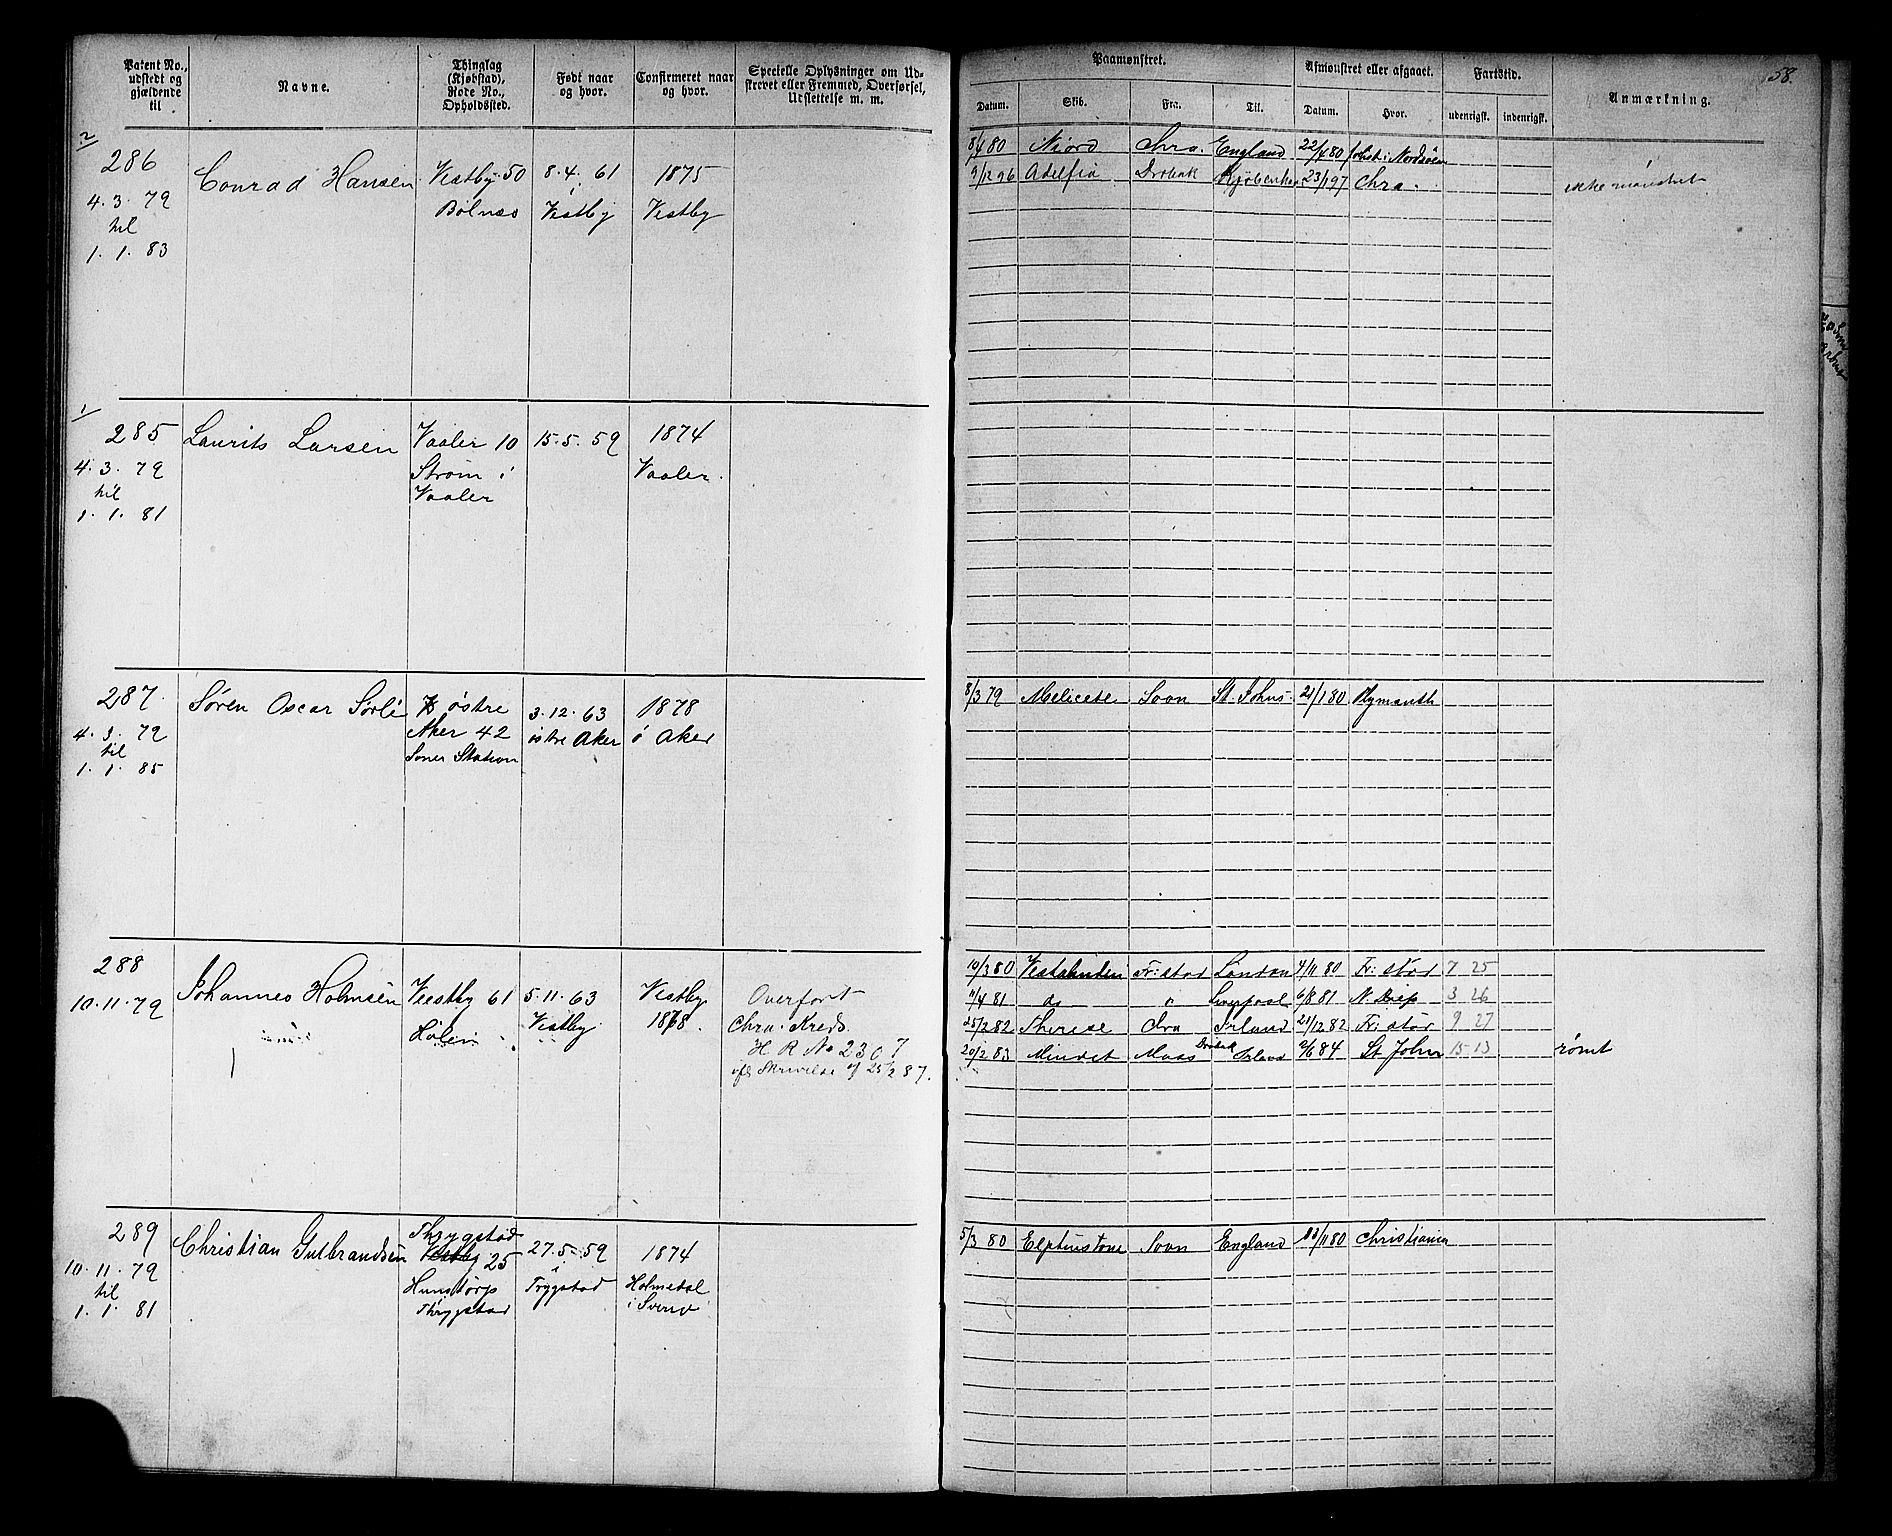 58.
Patent No., udstedt og gjældende til
Navne.
Thinglag (Kjøbstad), Rode No., Opholdssted.
Født naar og hvor.
Confirmeret naar og hvor.
Specielle Oplysninger om Udskrevet eller Fremmed, Overførsel, Udslettelse m. m.
Paamønstret.
Datum. Skib. Fra. Til.
Afmønstret eller afgaaet.
Datum. Hvor.
Fartstid.
udenrigsk. indenrigsk.
Anmærkning.
2
286 Conrad Hansen Vestby 50 8.4.61 1875
4.3.79 Bølnæs Vestby Vestby
til
1.1.83
8/4 80 Niord Chra. England 22/4 80 Nordsøen
9/12 96 Adelfia Drøbak Kjøbenhavn 23/1 97 Chra.
ikke mønstret
1
285 Laurits Larsen Vaaler 10 15.5.59 1874
4.3.79 Strøm i Vaaler.
til Vaaler
1.1.81
287. Søren Oscar Sørli østre 3.12.63 1878
4.3.79 Aker 42 østre Aker ø Aker
til Soner Station
1.1.85
8/3 79 Melicete Soon St. Johns. 21/1 80 Plymouth
288 Johannes Holmsen Vestby 61 5.11.63 Vestby
10.11.79 Hølen Vestby 1878.
Overført
Chra. Kreds
H R No 2307
Skrivelse af 25/2 87.
10/3 80 Vestalinden Fr:stad London 4/11 80 Fr:stad 7 25
11/4 81 do " Liverpool 6/8 81 N. Diep 3 26
25/2 82 Therese Chra Irland 21/12 82 Fr:stad 9 27
20/2 83 Mindet Moss Drøbak Irland 2/6 84 St John 15 13 rømt
289 Christian Gulbrandsen Thrygstad 27.5.59 1874
10.11.79 Vestby 25 Trygstad Holmedal
til Hunstorp i Sverig
1.1.81 Thrygstad
5/3 80 Elphinstone Soon England 13/11 80 Christiania